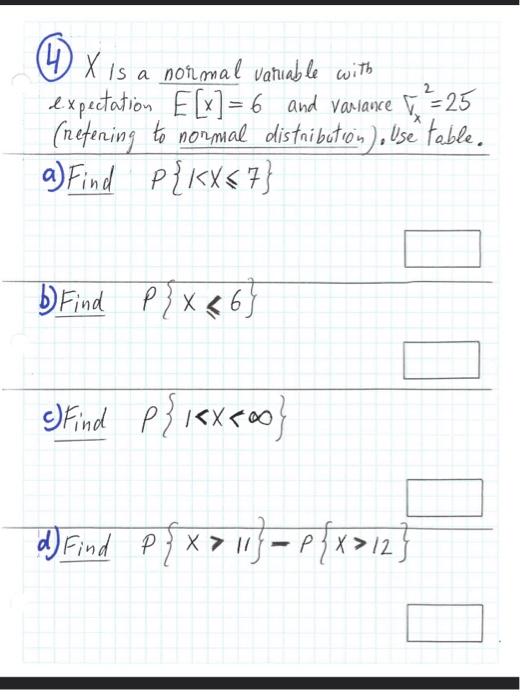 4 X is a normal variable with
expectation E[x] = 6 and variance σₓ² = 25
(refering to normal distribution). Use table.
a) Find P{1<X⩽7}
b) Find P{X⩽6}
c) Find P{1<X<∞}
d) Find P{X > 11} - P{X > 12}